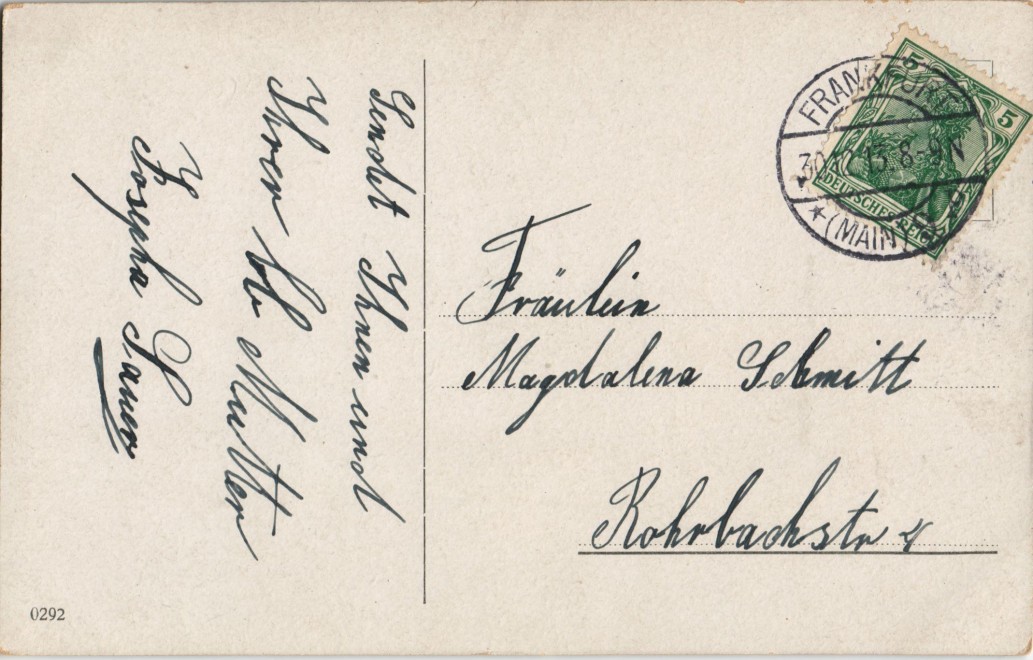 Sendet Ihnen und
Ihrer lb Mutter
Josepha Sauer
0292
5
5
DEUTSCHES REICH
FRANKFURT
8-9N
★(MAIN)
Fräulein
Magdalena Schmitt
Rohrbachstr